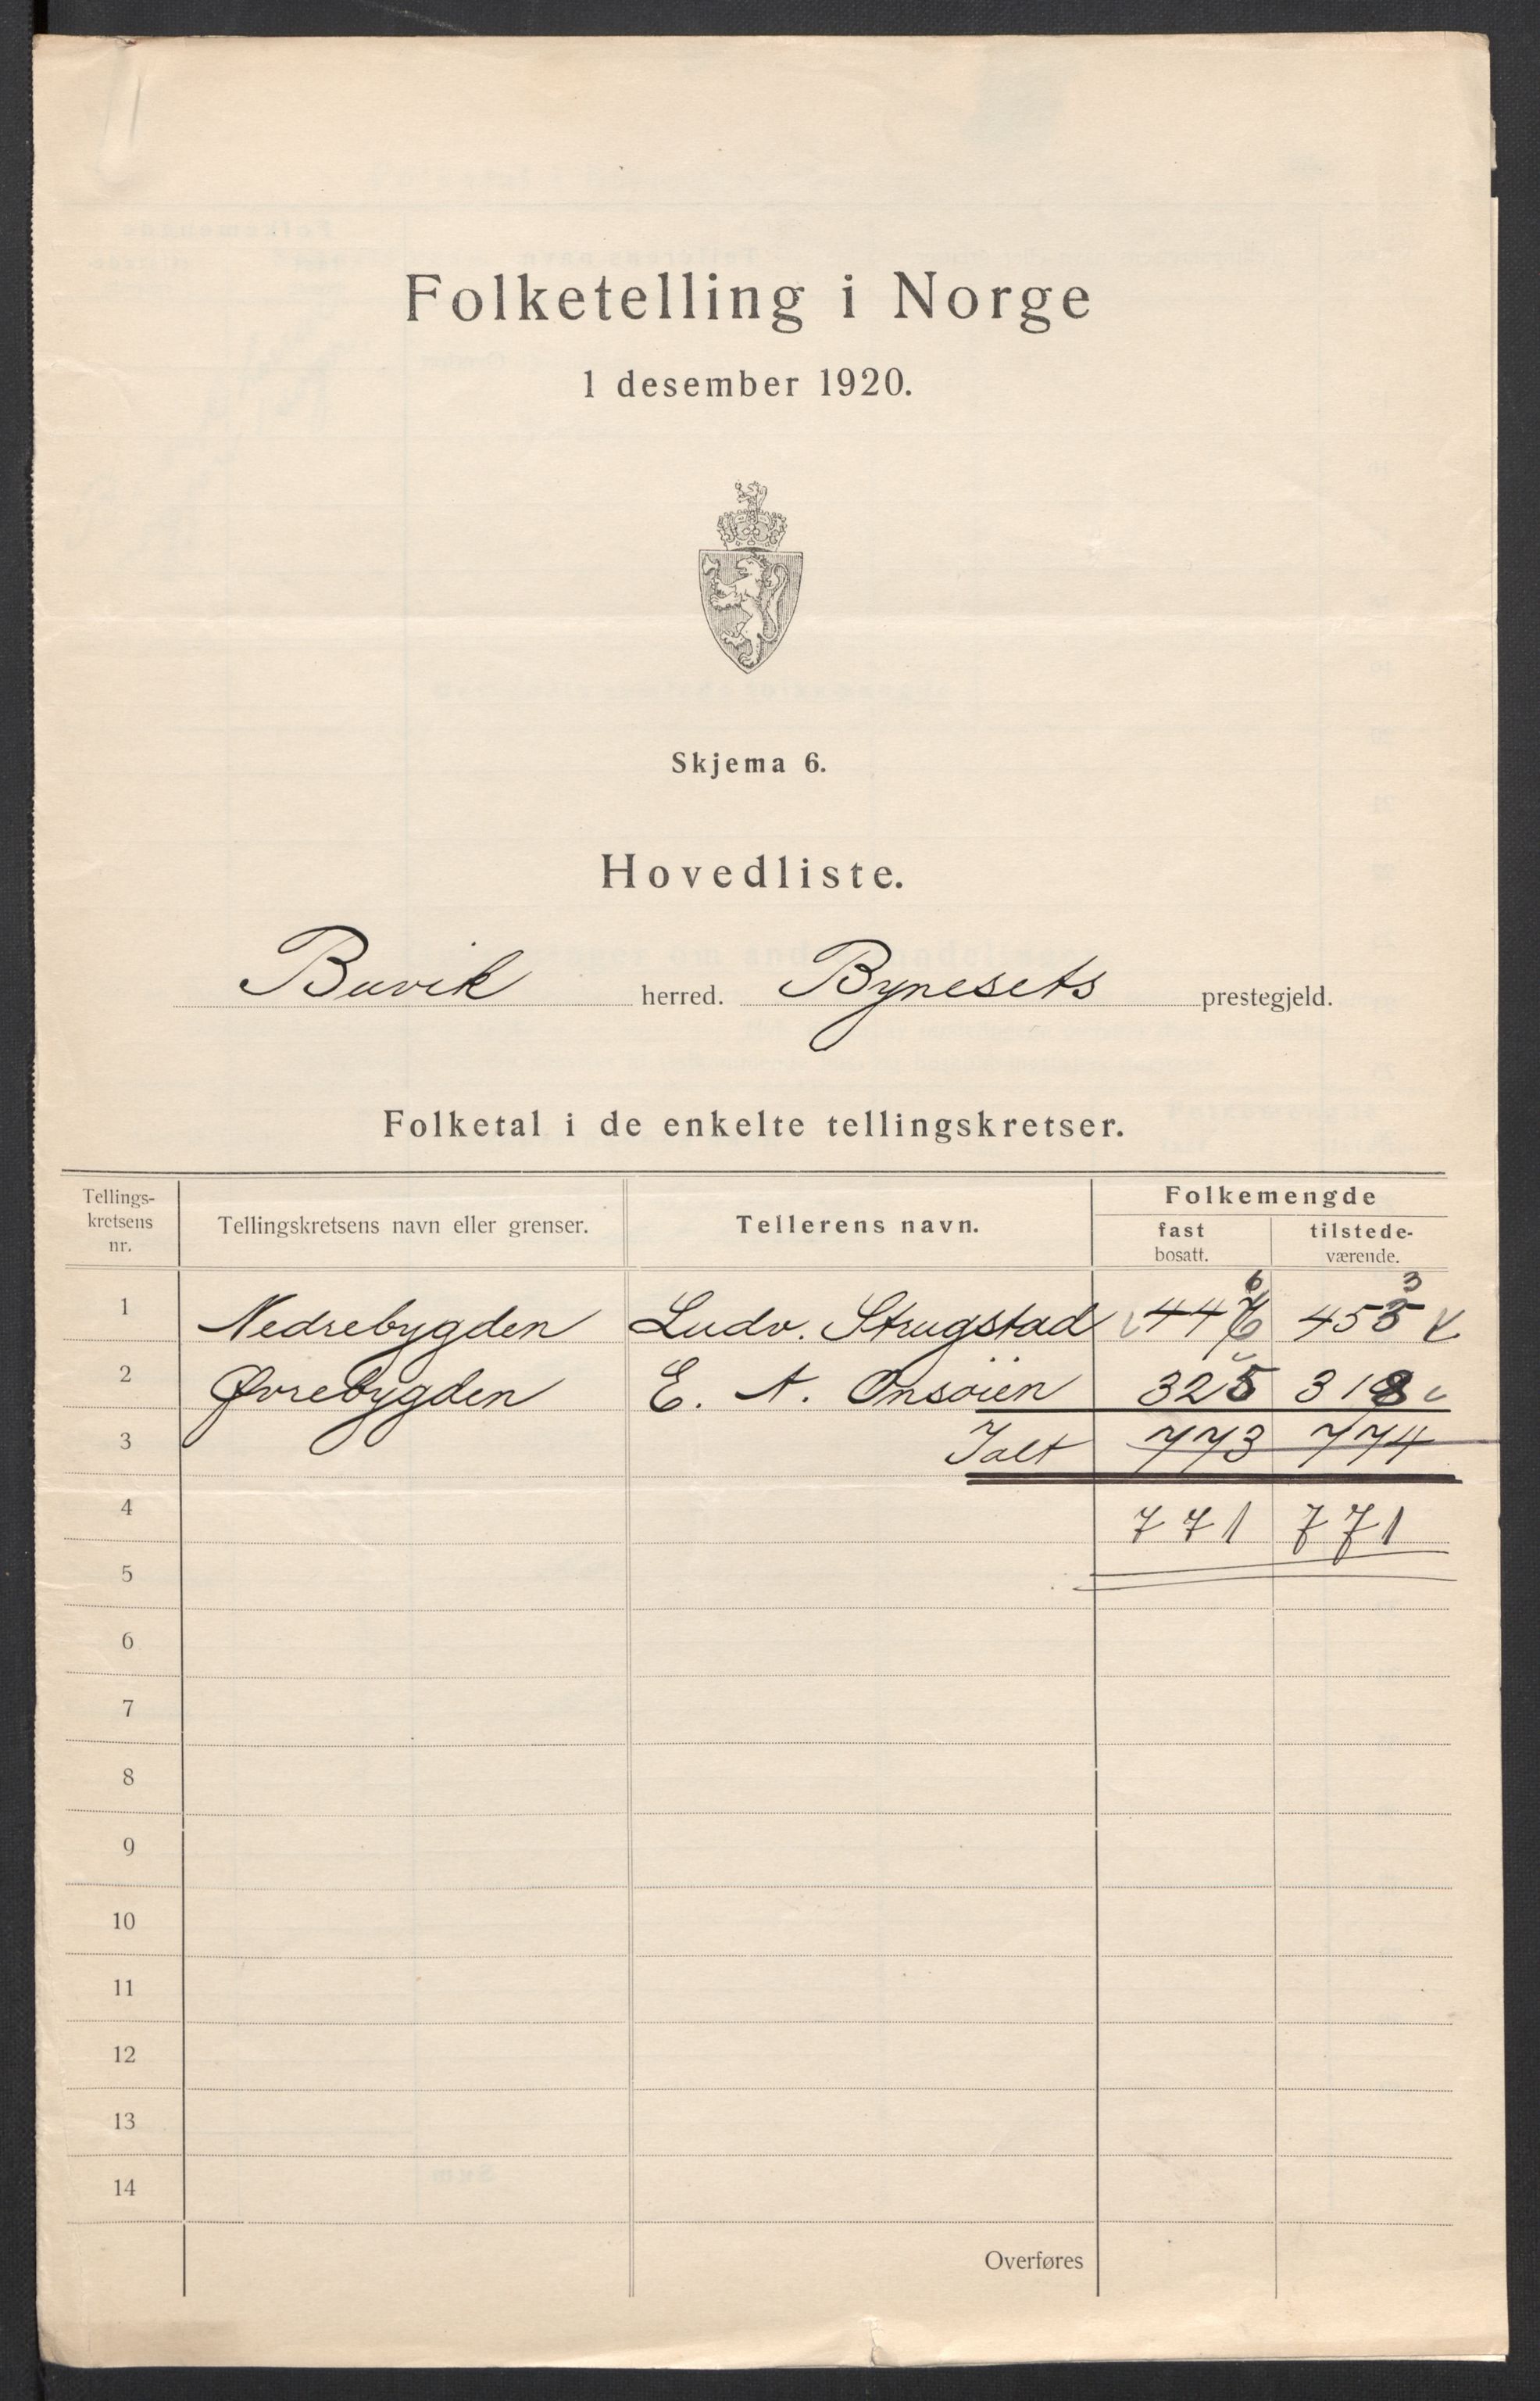 Folketelling i Norge
1 desember 1920.
Skjema 6.
Hovedliste.
Buvik herred. Bynesets prestegjeld.
Folketal i de enkelte tellingskretser.
Tellings-
kretsens
nr.
Tellingskretsens navn eller grenser.
Tellerens navn.
Folkemengde
fast
bosatt.
tilstede-
værende.
6 3
1 Nedrebygden Ludv. Strugstad 446 453
2 Øvrebygden E. A. Onsøien 325 318
3 Ialt 773 774
4 771 771
5
6
7
8
9
10
11
12
13
14
Overføres